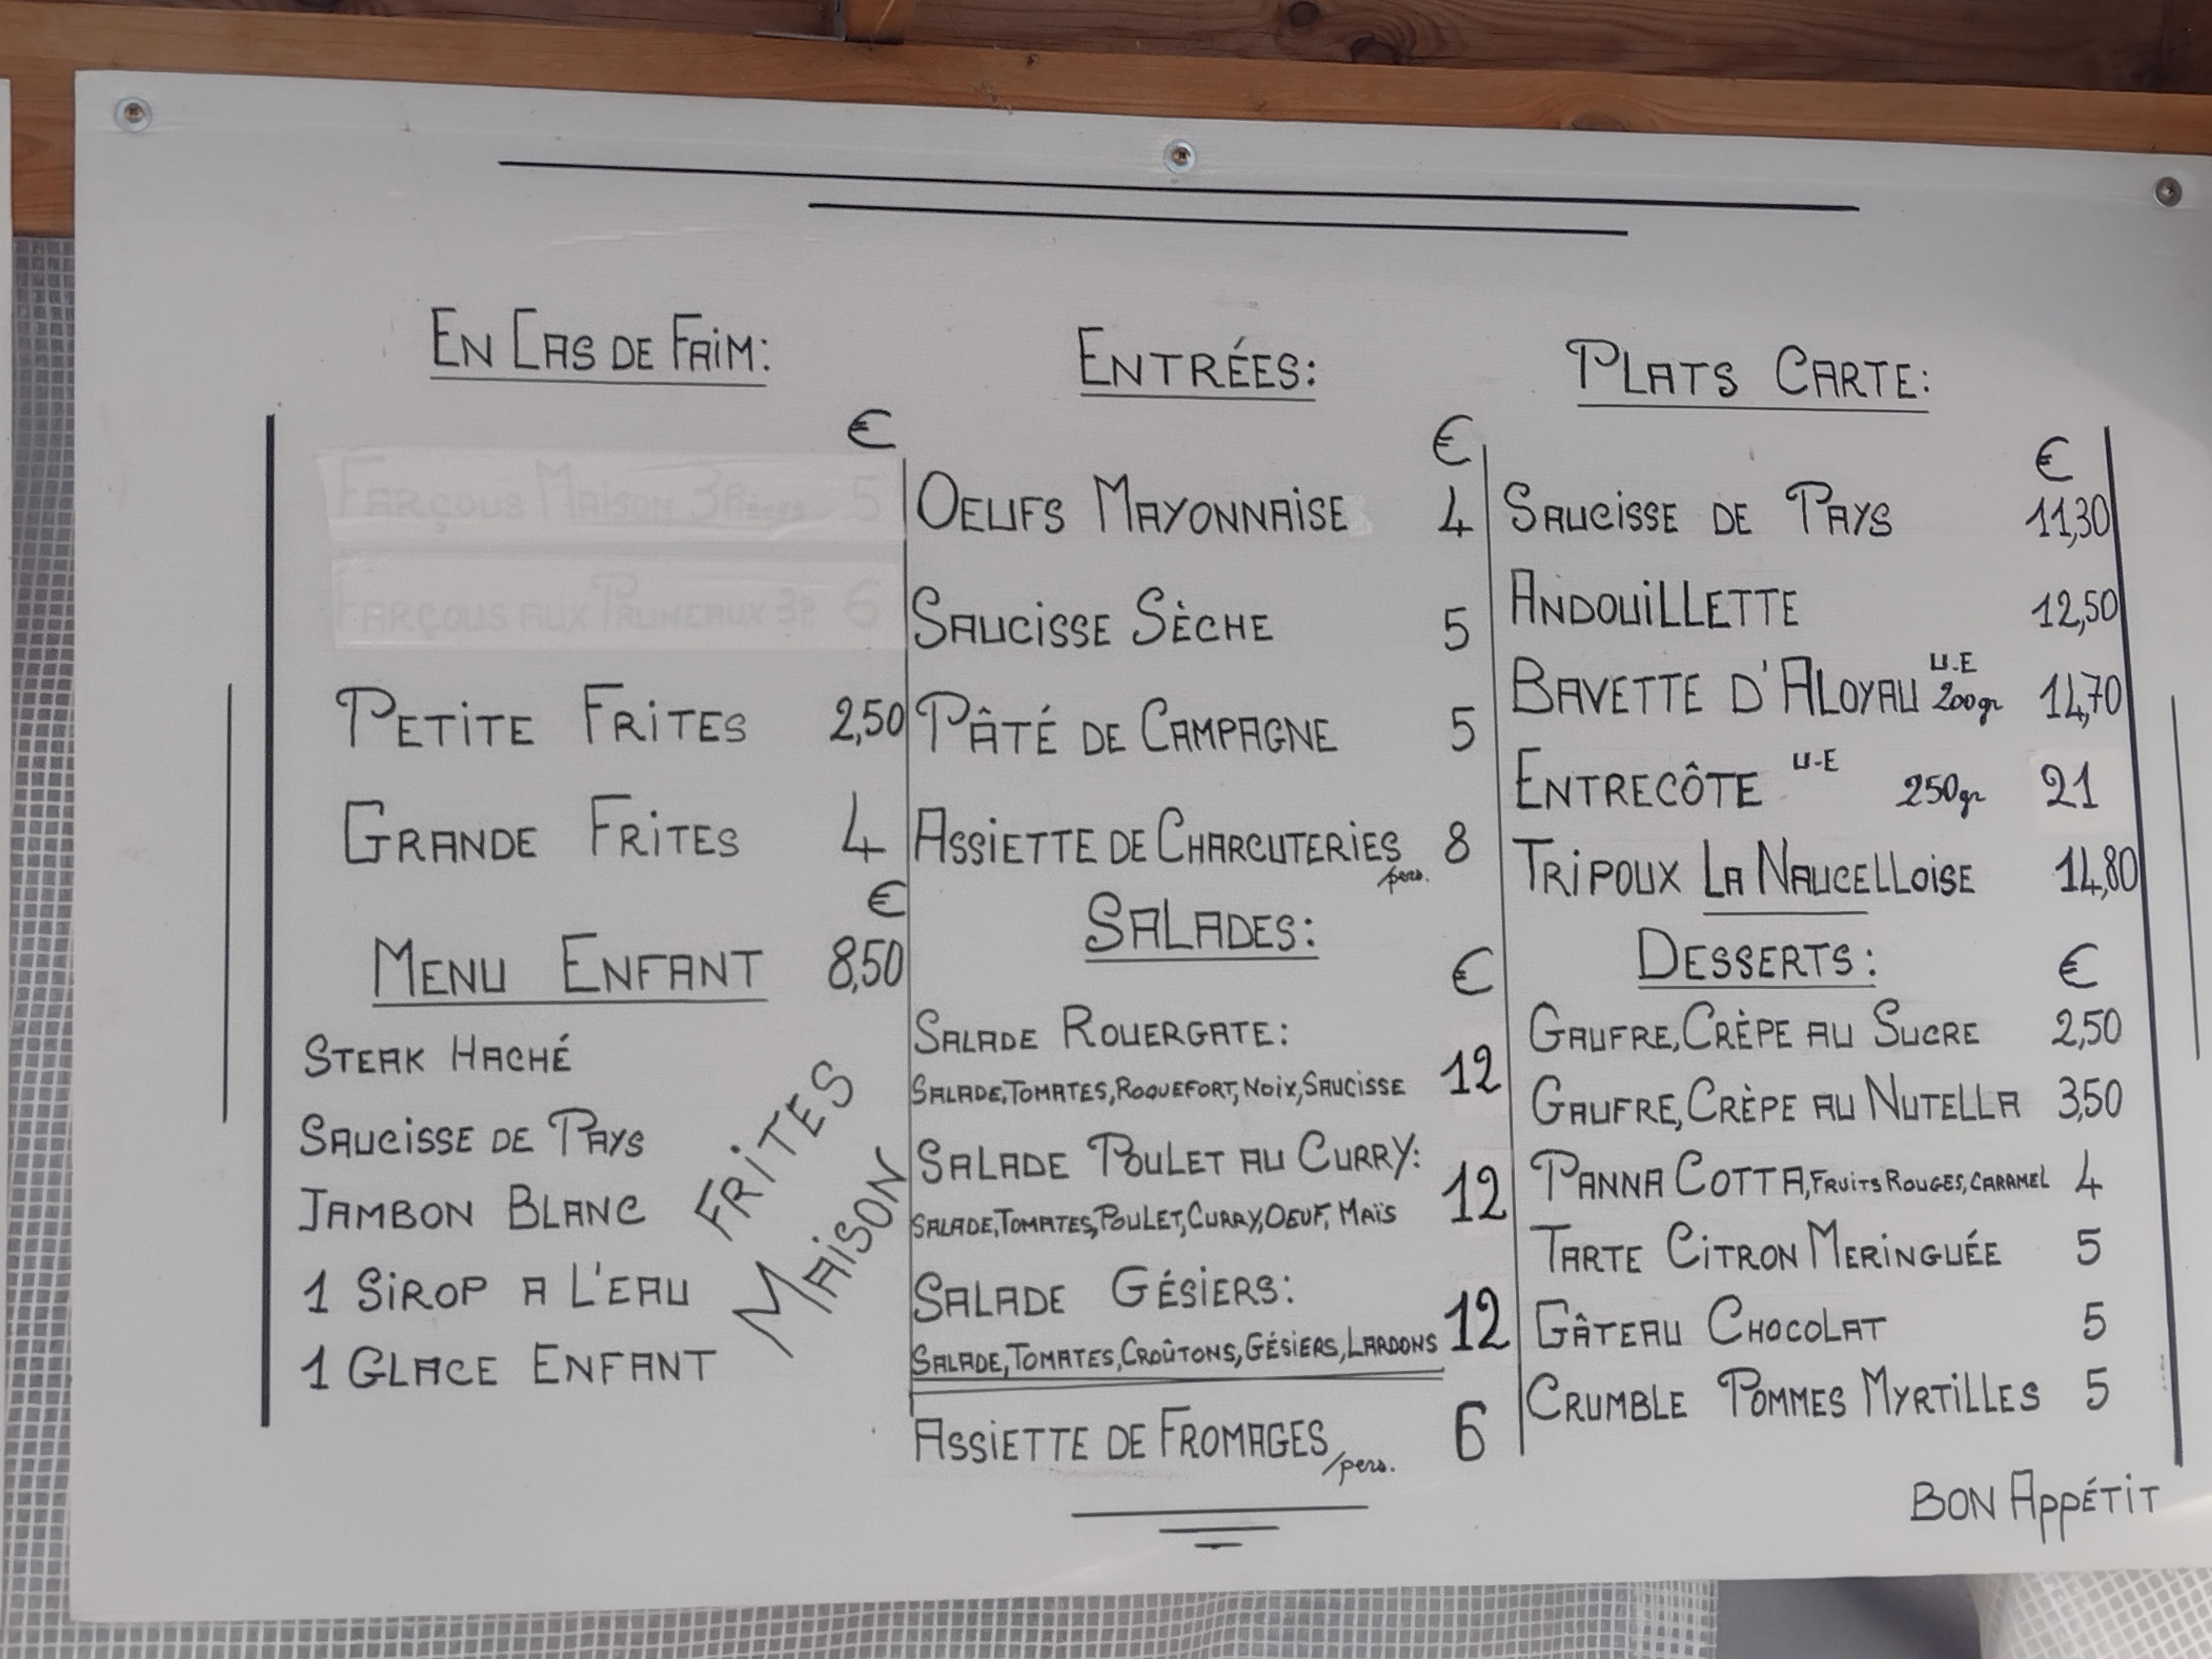 EN CAS DE FAIM:
€
FARÇOUS MAISON 3 PIÈCES 5
FARÇOUS AUX PRUNEAUX 3P. 6
PETITE FRITES 2,50
GRANDE FRITES 4
€
MENU ENFANT 8,50
STEAK HACHÉ
SAUCISSE DE PAYS
JAMBON BLANC
1 SIROP A L'EAU
1 GLACE ENFANT
FRITES
MAISON
ENTRÉES:
€
OEUFS MAYONNAISE 4
SAUCISSE SÈCHE 5
PÂTÉ DE CAMPAGNE 5
ASSIETTE DE CHARCUTERIES /pers. 8
SALADES:
€
SALADE ROUERGATE:
SALADE, TOMATES, ROQUEFORT, NOIX, SAUCISSE 12
SALADE POULET AU CURRY:
SALADE, TOMATES, POULET, CURRY, OEUF, MAÏS 12
SALADE GÉSIERS:
SALADE, TOMATES, CROÛTONS, GÉSIERS, LARDONS 12
ASSIETTE DE FROMAGES /pers. 6
PLATS CARTE:
€
SAUCISSE DE PAYS 11,30
ANDOUILLETTE 12,50
BAVETTE D'ALOYAU U.E 200gr 14,70
ENTRECÔTE U-E 250gr 21
TRIPOUX LA NAUCELLOISE 14,80
DESSERTS: €
GAUFRE, CRÈPE AU SUCRE 2,50
GAUFRE, CRÈPE AU NUTELLA 3,50
PANNA COTTA, FRUITS ROUGES, CARAMEL 4
TARTE CITRON MERINGUÉE 5
GÂTEAU CHOCOLAT 5
CRUMBLE POMMES MYRTILLES 5
BON APPÉTIT